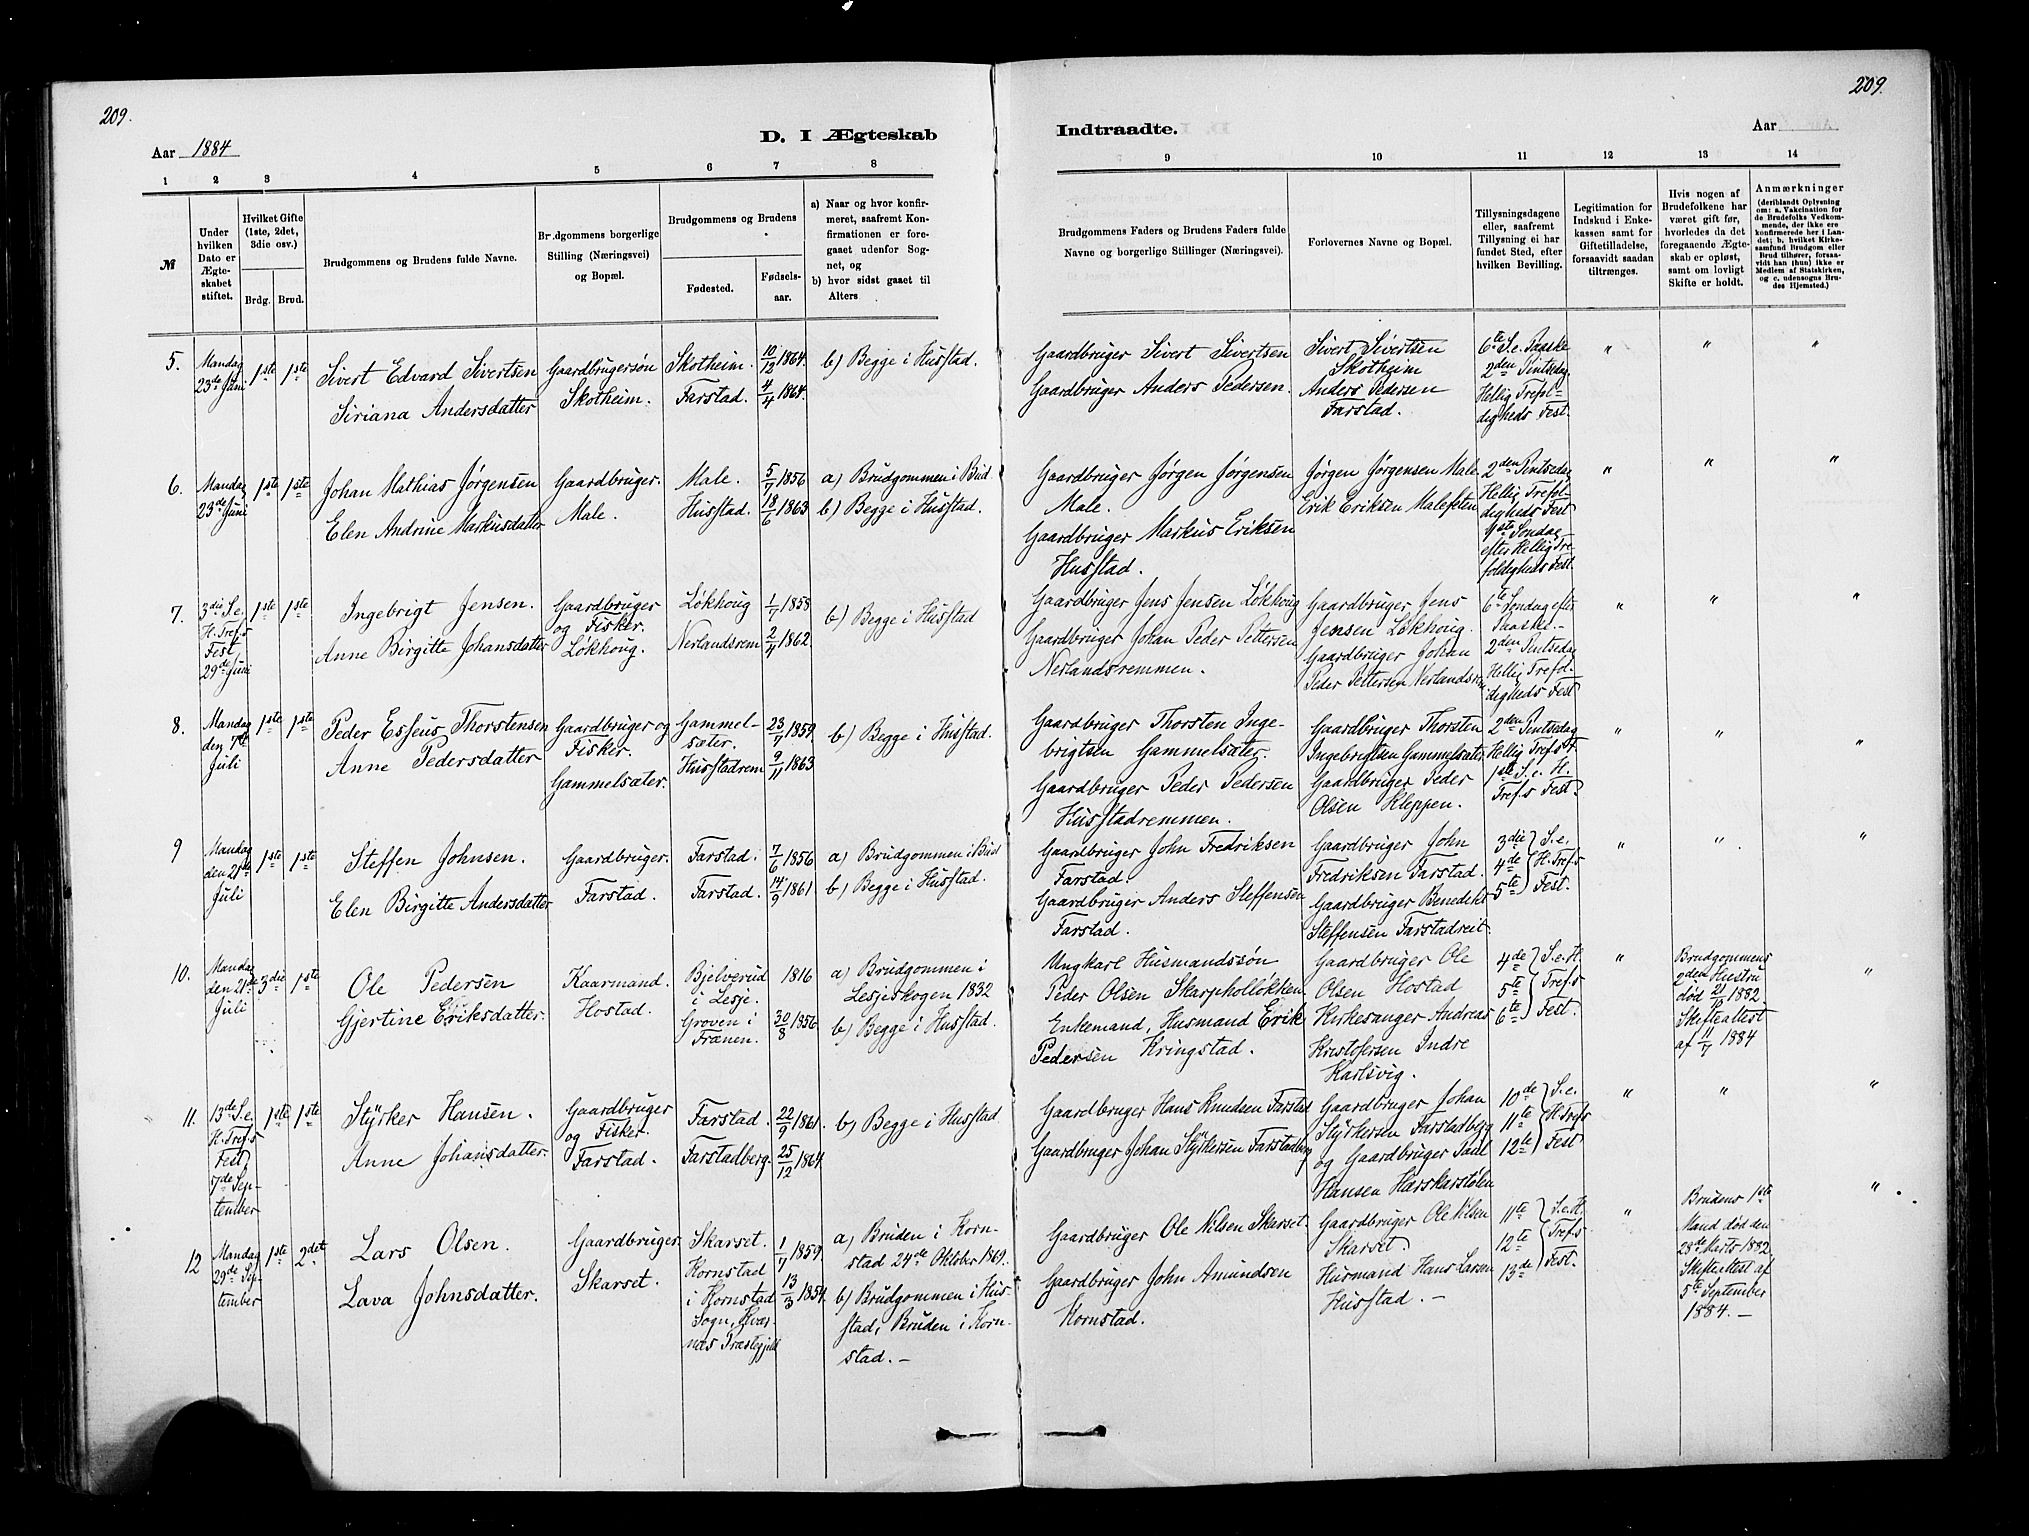 209.
209.
Aar 1884
D. I Ægteskab
Indtraadte.
Aar
1 2 3 4 5 6 7 8
9 10 11 12 13 14
№
Under hvilken Dato er Ægteskabet stiftet.
Hvilket Gifte (1ste, 2det, 3die osv.)
Brdg. Brud.
Brudgommens og Brudens fulde Navne.
Brudgommens borgerlige Stilling (Næringsvei) og Bopæl.
Brudgommens og Brudens
Fødested.
Fødselsaar.
a) Naar og hvor konfirmeret, saafremt Konfirmationen er foregaaet udenfor Sognet, og
b) hvor sidst gaaet til Alters
Brudgommens Faders og Brudens Faders fulde Navne og borgerlige Stillinger (Næringsvei).
Forlovernes Navne og Bopæl.
Tillysningsdagene eller, saafremt Tillysning ei har fundet Sted, efter hvilken Bevilling.
Legitimation for Indskud i Enkekassen samt for Giftetilladelse, forsaavidt saadan tiltrænges.
Hvis nogen af Brudefolkene har været gift før, hvorledes da det foregaaende Ægteskab er opløst, samt om lovligt Skifte er holdt.
Anmærkninger (deriblandt Oplysning om: a. Vakcination for de Brudefolks Vedkommende, der ikke ere konfirmerede her i Landet; b. hvilket Kirkesamfund Brudgom eller Brud tilhører, forsaavidt han (hun) ikke er Medlem af Statskirken, og c. udensogns Brudes Hjemsted.)
5. Mandag 23de Juni
1ste 1ste
Sivert Edvard Sivertsen
Siriana Andersdatter
Gaardbrugersøn
Skotheim.
Skotheim. 10/13 1864.
Farstad. 4/4 1864.
b) Begge i Husstad.
Gaardbruger Sivert Sivertsen
Gaardbruger Anders Pedersen.
Sivert Sivertsen
Skotheim
Anders Pedersen
Farstad.
6te S. e. Paaske
2den Pintsedag
Hellig Trefol-
digheds Fest.
" " "
6. Mandag 23de Juni
1ste 1ste
Johan Mathias Jørgensen
Elen Andrine Markusdatter
Gaardbruger.
Male.
Male. 5/7 1856
Husstad. 18/6 1863
a) Brudgommen i Bud
b) Begge i Husstad.
Gaardbruger Jørgen Jørgensen
Male.
Gaardbruger Markus Eriksen
Husstad.
Jørgen Jørgensen Male
Erik Eriksen Malefeten
2den Pintsedag
Hellig Trefol-
digheds Fest
1ste Søndag
efter Hellig Tre-
foldigheds Fest.
" " "
7. 3die S. e.
H. Tref.s
Fest,
29de Juni
1ste 1ste
Ingebrigt Jensen.
Anne Birgitte Johansdatter
Gaardbruger
og Fisker.
Løkhoug.
Løkhoug 1/7 1858
Nerlandsrem 2/4 1862.
b) Begge i Husstad
Gaardbruger Jens Jensen Løkhoug
Gaardbruger Johan Peder Pettersen
Nerlandsremmen.
Gaardbruger Jens
Jensen Løkhoug.
Gaardbruger Johan
Peder Pettersen Nerlandsrem
6te Søndag efter
Paaske.-
2den Pintsedag
Hellig Trefol-
digheds Fest
" " "
8. Mandag
den 7de
Juli
1ste 1ste
Peder Esseus Thorstensen
Anne Pedersdatter
Gaardbruger og
Fisker.
Gammelsæter.
Gammel-
sæter. 23/7 1859
Husstadrem 9/11 1863
b) Begge i Husstad.
Gaardbruger Thorsten Inge-
brigtsen Gammelsæter.
Gaardbruger Peder Pedersen
Husstadremmen.
Gaardbruger Thorsten
Ingebrigtsen Gammelsæter
Gaardbruger Peder
Olsen Kleppen.
2den Pintsedag
Hellig Tref.s F.
1ste S. e. H.
Tref.s Fest.
" " "
9 Mandag
den 21de
Juli
1ste 1ste
Steffen Johnsen.
Elen Birgitte Andersdatter
Gaardbruger.
Farstad.
Farstad. 7/6 1856
Farstad. 14/9 1861
a) Brudgommen i Bud
b) Begge i Husstad.
Gaardbruger John Fredriksen
Farstad.
Gaardbruger Anders Steffensen
Farstad.
Gaardbruger John
Fredriksen Farstad.
Gaardbruger Benedikt
Steffensen Farstadreit.
3die } S. e.
4de } H. Tref.s
5te } Fest.
" " "
10. Mandag
den 21de
Juli
3die 1ste
Ole Pedersen
Gjertine Eriksdatter.
Kaarmand.
Hostad.
Bjelverud
i Lesje. 1816
Groven i
Frænen. 30/8 1856
a) Brudgommen i
Lesjeskogen 1832
b) Begge i Husstad.
Ungkarl Husmandssøn
Peder Olsen Skarpholløkken
Enkemand, Husmand Erik
Pedersen Kringstad.
Gaardbruger Ole
Olsen Hostad
Kirkesanger Andreas
Kristofersen Indre
Karlsvig.
4de } S. e. H.
5te } Tref.s
6te } Fest.
"
Brudgommens
2den Hustru
død 21/10 1882.
Skifteattest
af 11/7 1884
"
11. 13de S. e.
H. Tref.s
Fest,
7de Sep-
tember
1ste 1ste
Styrker Hansen.
Anne Johansdatter.
Gaardbruger
og Fisker.
Farstad.
Farstad. 22/9 1861.
Farstadberg. 25/12 1864.
b) Begge i Husstad
Gaardbruger Hans Knudsen Farstad
Gaardbruger Johan Styrkersen Farstadberg
Gaardbruger Johan
Styrkersen Farstadberg
og Gaardbruger Paul
Hansen Harskarstølen
10de } S. e.
11te } H. Tref.s
12te } Fest
" " "
12 Mandag
29de Sep-
tember
1ste 2det
Lars Olsen.
Lava Johnsdatter.
Gaardbruger.
Skarset.
Skarset. 1/7 1859.
Kornstad
i Kornstad
Sogn, Kvær-
næs Præstegjeld 13/3 1854.
a) Bruden i Korn-
stad 24de Oktober 1869.
b) Brudgommen i Hus-
stad, Bruden i Korn-
stad. -
Gaardbruger Ole Nilsen Skarset.
Gaardbruger John Amundsen
Kornstad.
Gaardbruger Ole Nilsen
Skarset.
Husmand Hans Larsen
Husstad. -
11te } S. e. H.
12te } Tref.s
13de } Fest.
"
Brudens 1ste
Mand død den
28de Marts 1882.
Skifteattest af
5te September
1884. -
"